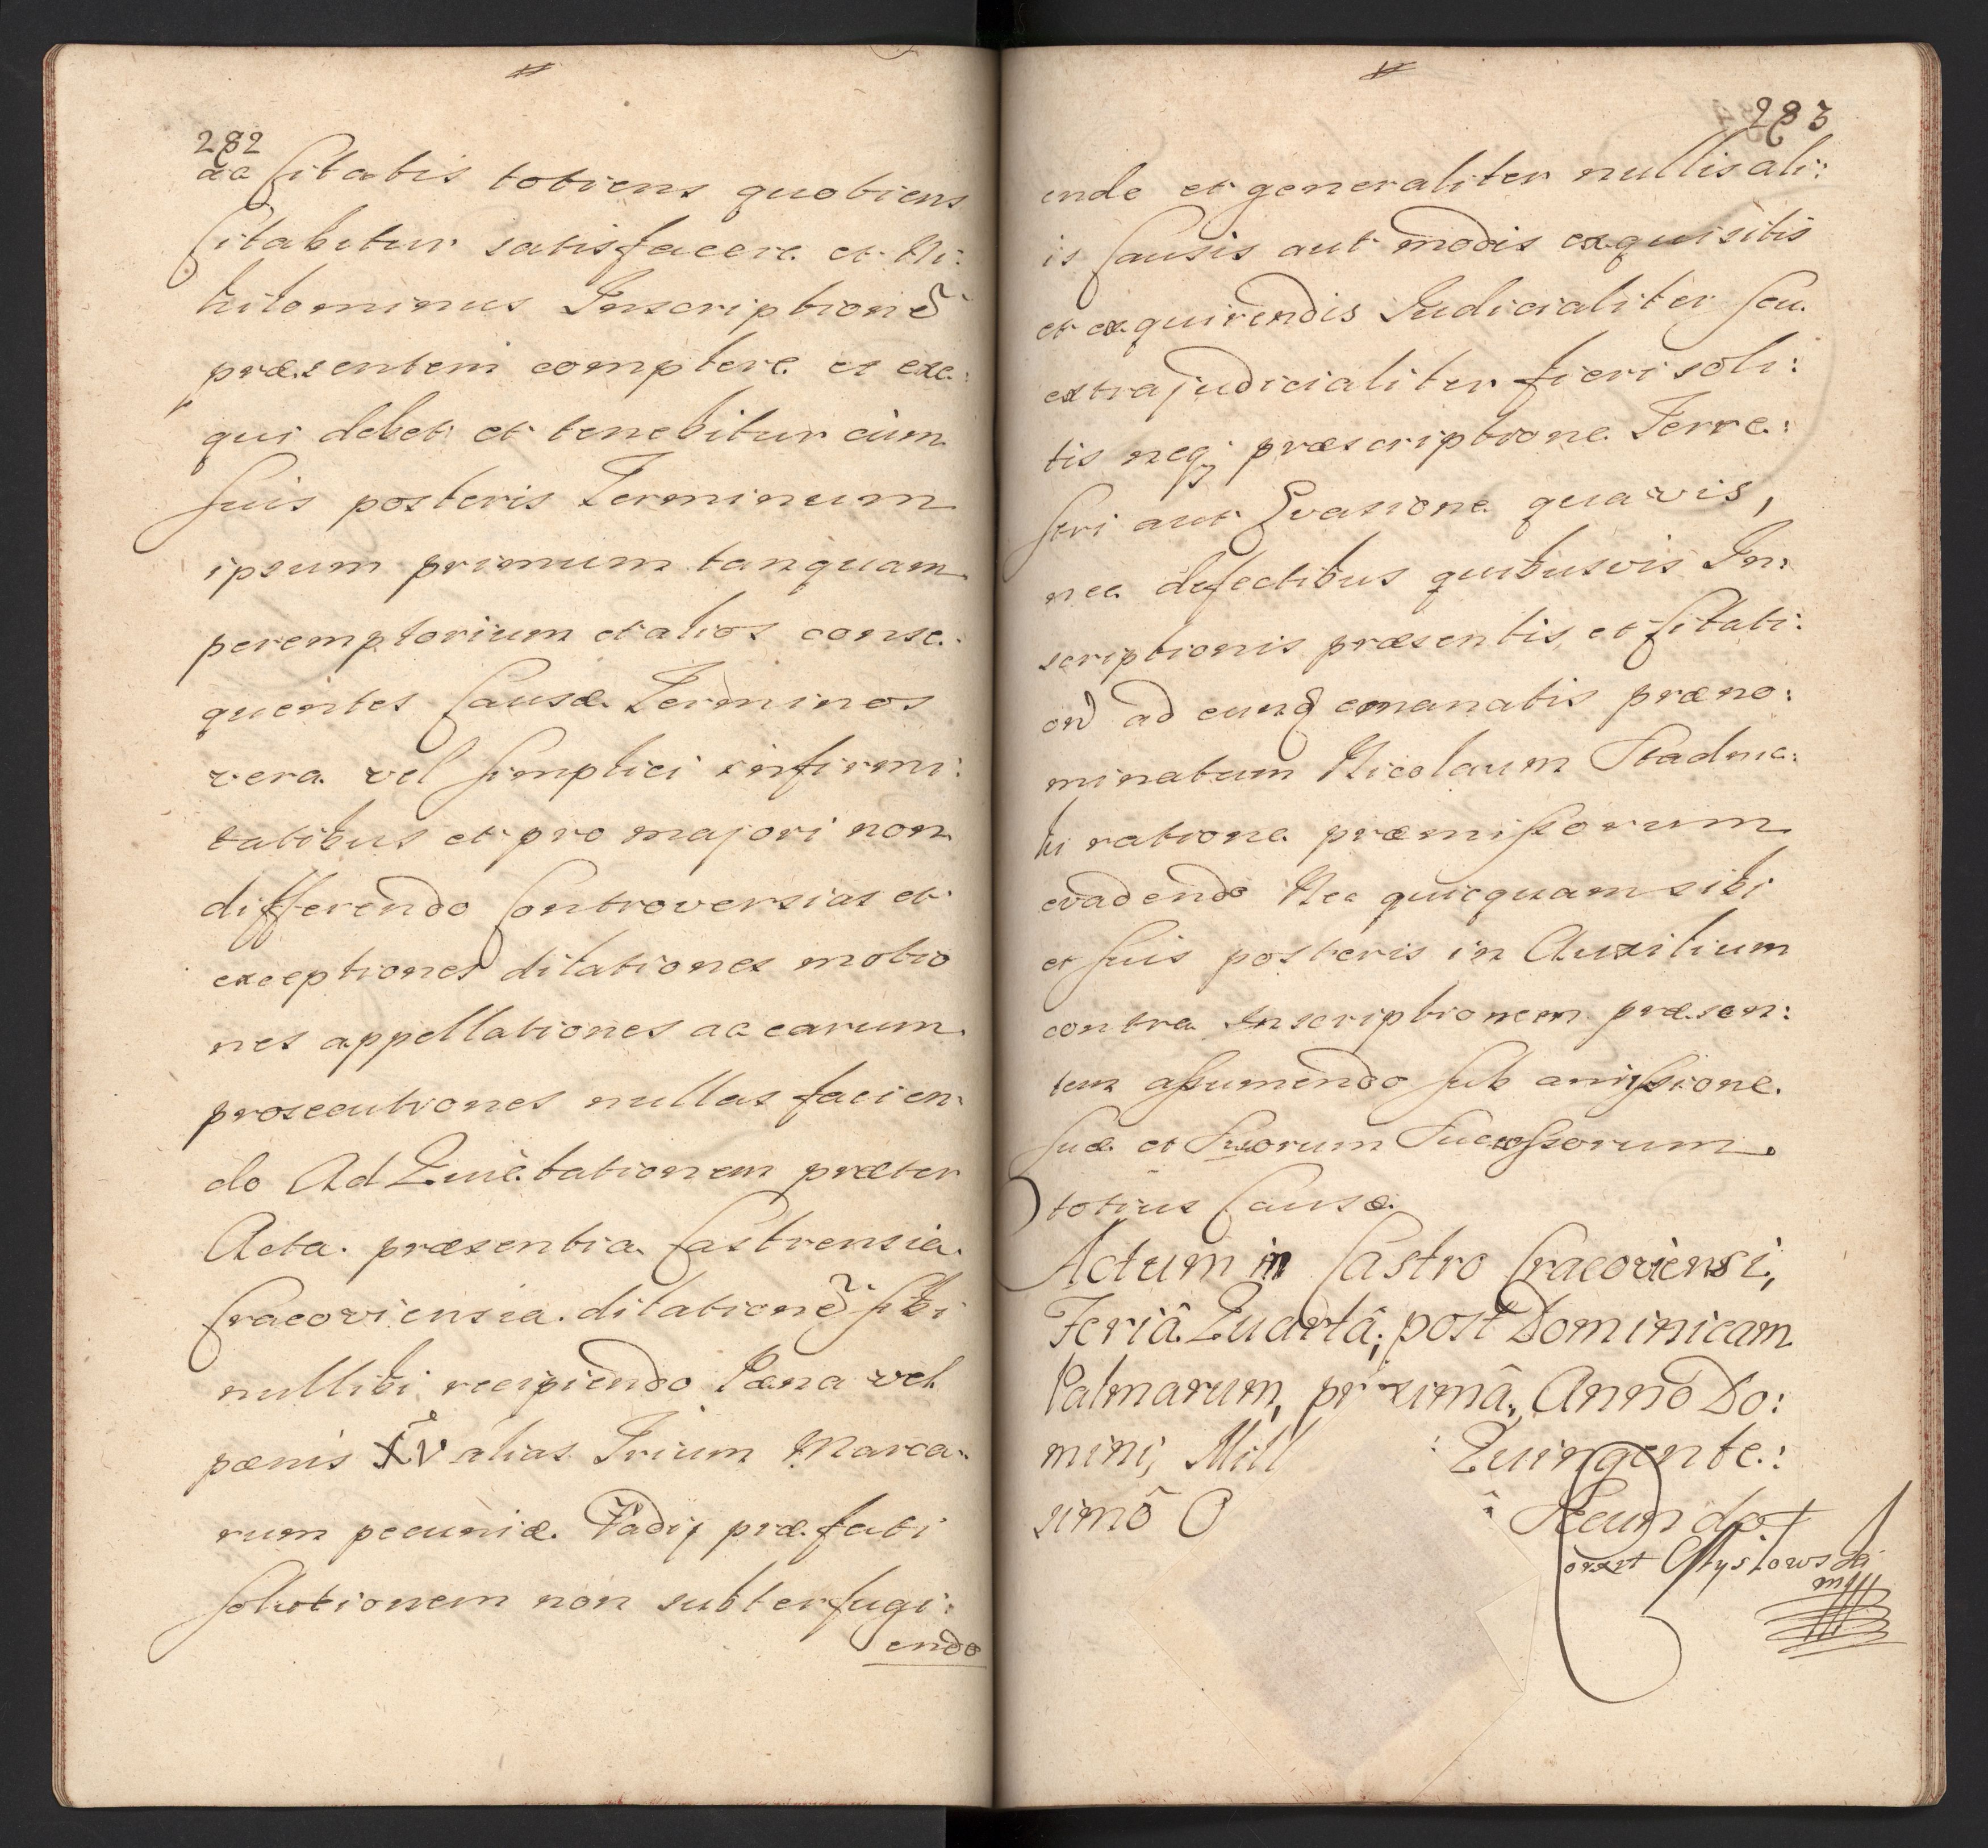 282
ac Citatis totiens quotiens
Citabitur satisfacere et Ni:
hilominus Inscriptionẽ
præsentem complere et exe:
qui debet et tenebitur cùm
suis posteris Terminum
ipsum primum tanquam
peremptorium et alios conse:
quentes Causæ Terminos
vera vel simplici infirmi:
tatibus et pro majori non
differendo Controversias et
exceptiones dilationes motio
nes appellationes ac earum
prosecutiones nullas facien:
do Ad Quietationem præter
Acta præsentia Castrensia
Cracoviensia dilationẽ sibi
nullibi recipiendo Pæna vel
pænis XV alias Trium Marca:
rum pecuniæ Vadij præfati
solutionem non subterfugi:
endo
283
inde et generaliter nullis ali:
is Causis aut modis exquisitis
et exquirendis Iudicialiter seu
extrajudicialiter fieri soli:
tis neqꝫ præscriptione Terre:
stri aut Evasione quavis,
nec defectibus quibusvis In:
scriptionis præsentis, et Citati:
on ad eund emanatis præno:
minatum Nicolaum Stadnic:
ki ratione præmissorum
evadendo Nec quicquam sibi
et suis posteris in Auxilium
contra Inscriptionem præsen:
tem assumendo sub amissione
suæ et Suorum Sucessorum
totius Causæ.
Actum in Castro Cracoviensi,
Feriâ Quartâ, post Dominicam
Palmarum, proximâ, Anno Do:
mini, Mill : Quingente:
simô O Secundo
Corext
mp